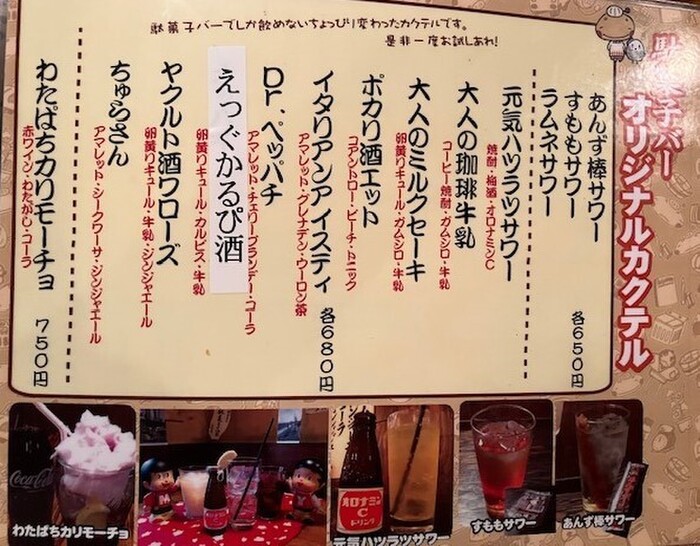 駄菓子バー
オリジナルカクテル
駄菓子バーでしか飲めないちょっぴり変わったカクテルです。
是非一度お試しあれ!
あんず棒サワー
すももサワー
ラムネサワー
各650円
元気ハツラツサワー
焼酎・梅酒・オロナミンC
大人の珈琲牛乳
コーヒー焼酎・ガムシロ・牛乳
大人のミルクセーキ
卵黄リキュール・ガムシロ・牛乳
ポカリ酒エット
コアントロー・ピーチ・トニック
イタリアンアイスティ
アマレット・グレナデン・ウーロン茶
各680円
Dr.ペッパチ
アマレット・チェリーブランデー・コーラ
えっぐかるぴ酒
卵黄リキュール・カルピス・牛乳
ヤクルト酒ワローズ
卵黄リキュール・牛乳・ジンジャエール
ちゅらさん
アマレット・シークワーサ・ジンジャエール
わたぱちカリモーチョ
赤ワイン・わたがし・コーラ
750円
Coca-Cola
わたぱちカリモーチョ
オロナミン
C
ドリンク
元気ハツラツサワー
すももサワー
あんず棒サワー